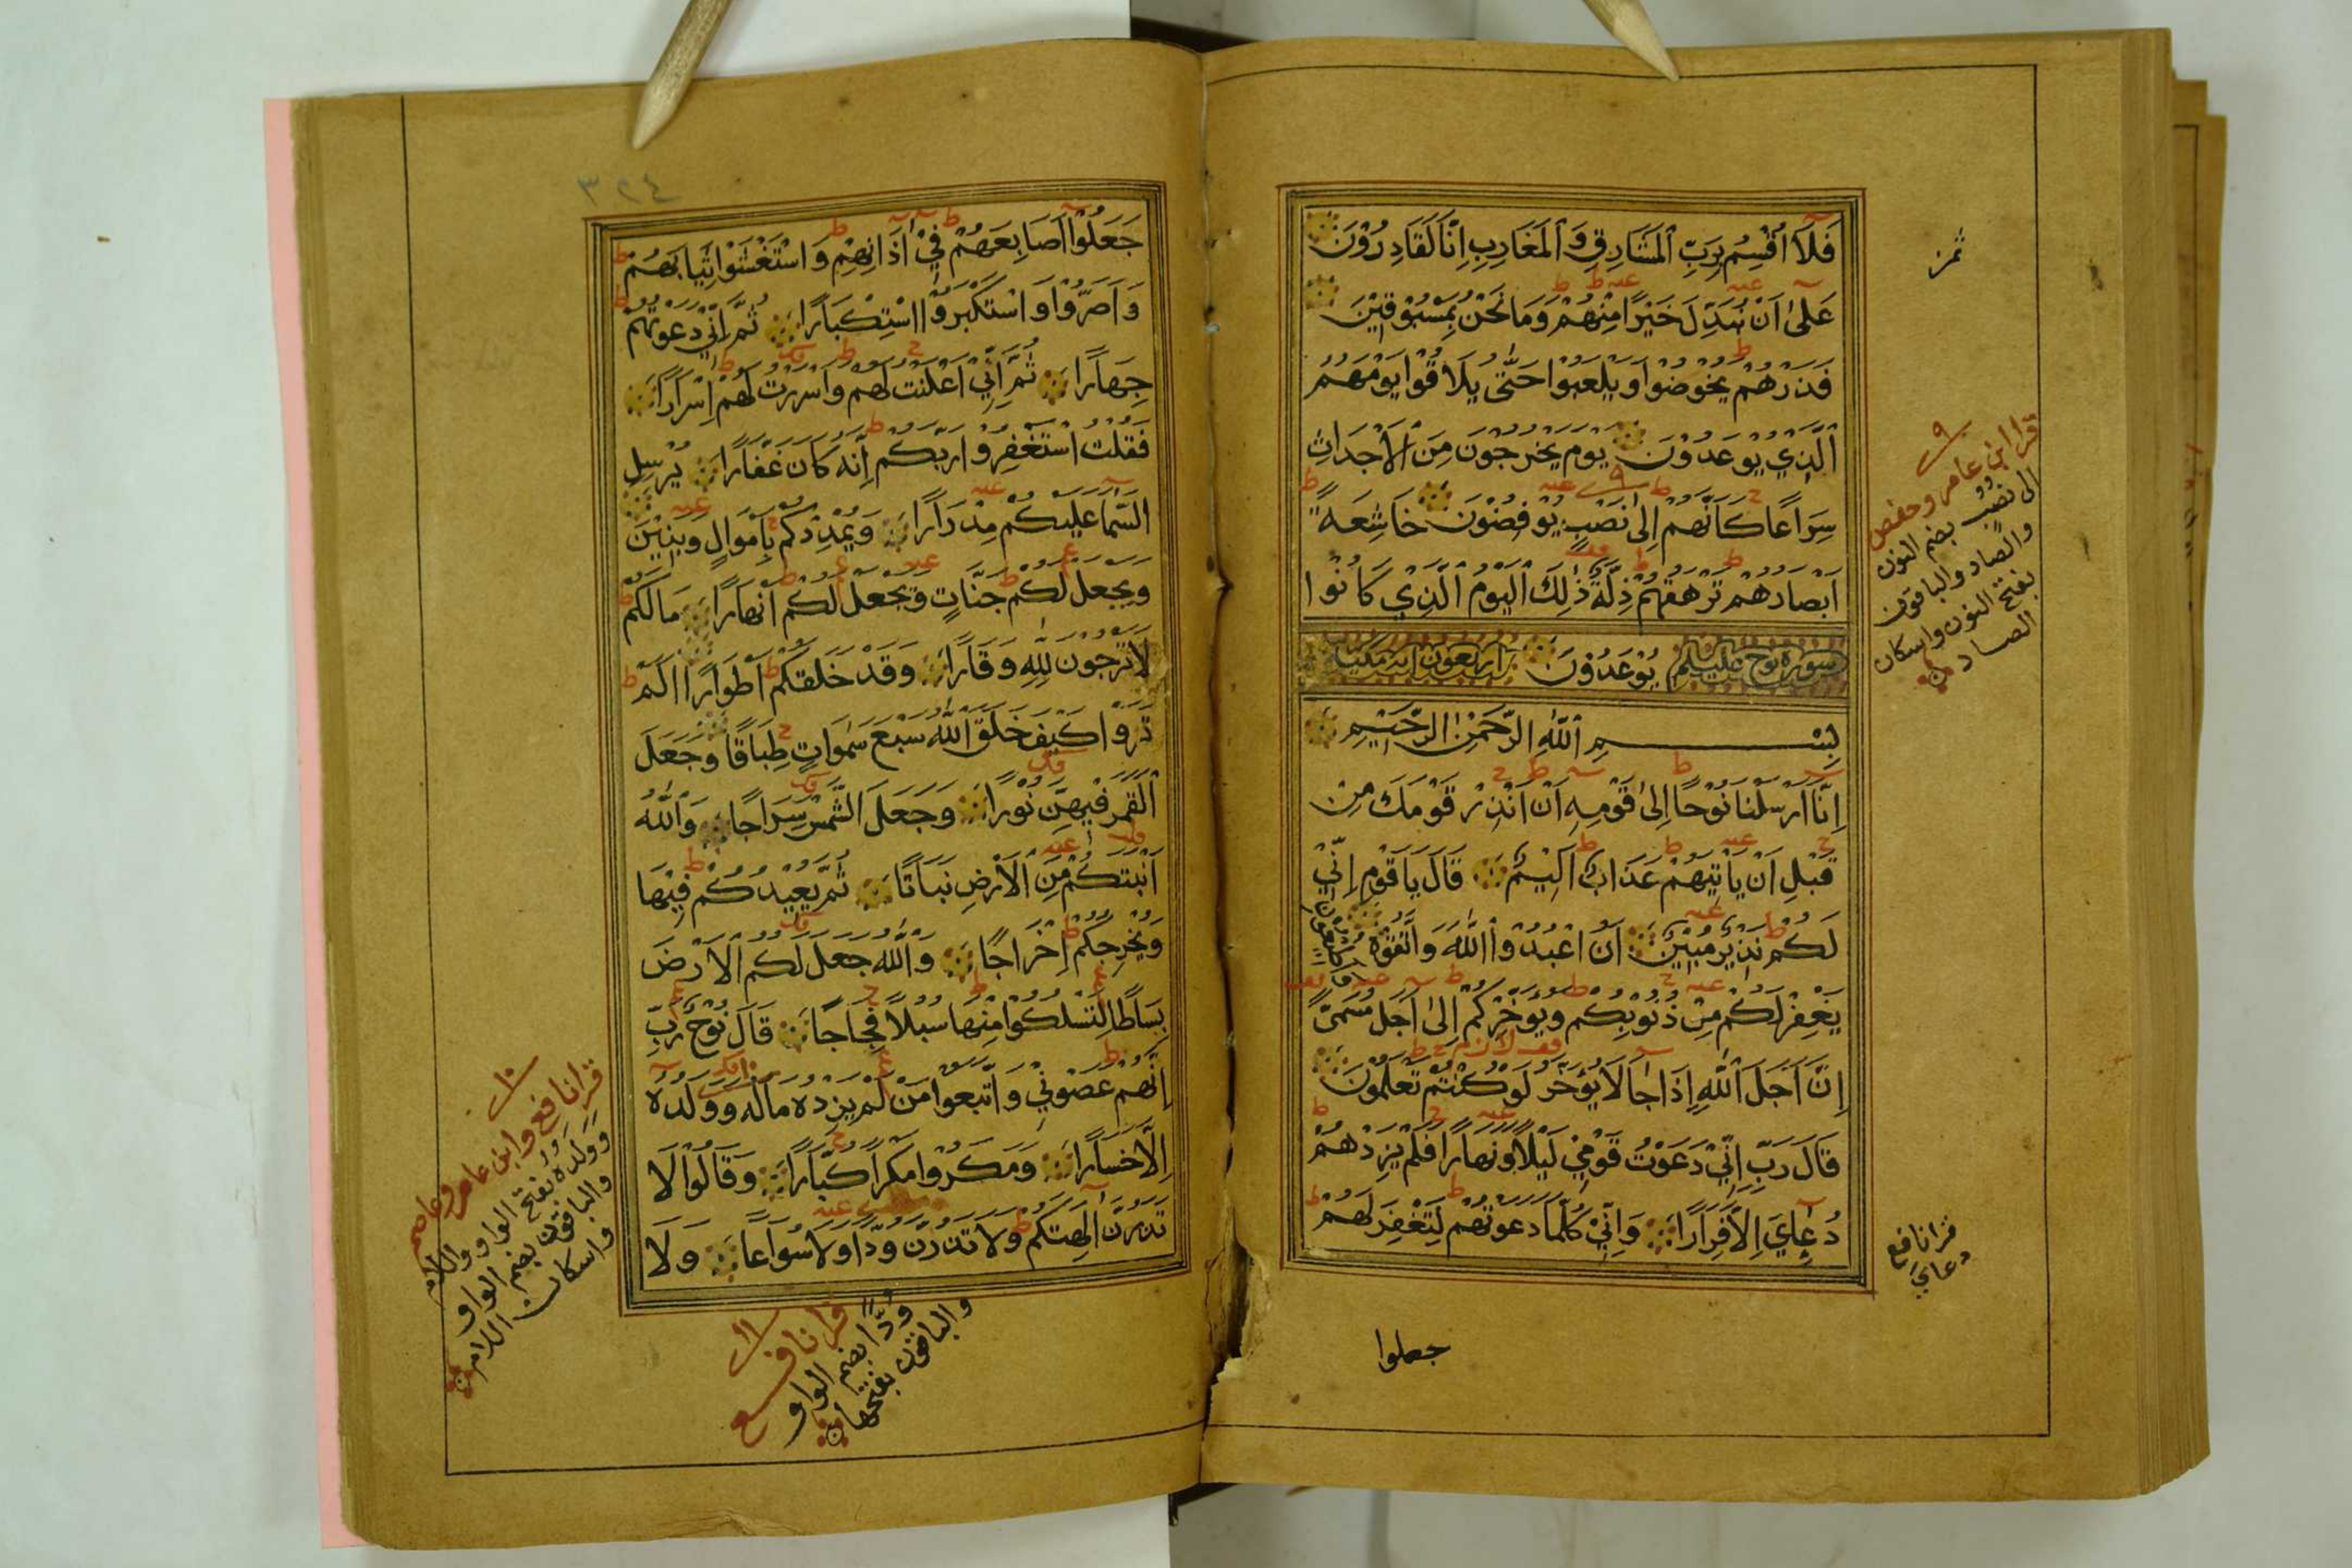 فَلَا اُقْسِمُ بِرَبِّ الْمَشَارِقِ وَ الْمَغَارِبِ اِنَّا لَقَادِرُوْنَ
عَلىٰ اَنْ نُبَدِّلَ خَيْرًا مِنْهُمْ وَمَا نَحْنُ بِمَسْبُوْقِيْنَ
فَذَرْهُمْ يَخُوْضُوْا وَيَلْعَبُوْا حَتّٰى يُلَاقُوْا يَوْمَهُمُ
الَّذِيْ يُوْعَدُوْنَ يَوْمَ يَخْرُجُوْنَ مِنَ الْاَجْدَاثِ
سِرَاعًا كَاَنَّهُمْ اِلىٰ نَصْبٍ يُوْفِضُوْنَ خَاشِعَةً
اَبْصَارُهُمْ تَرْهَقُهُمْ ذِلَّةٌ ذٰلِكَ الْيَوْمُ الَّذِيْ كَانُوْا
سورة نوح عليه السلم يُوْعَدُوْنَ اربعون اية مكية
بِسْمِ اللّٰهِ الرَّحْمٰنِ الرَّحِيْمِ
اِنَّا اَرْسَلْنَا نُوْحًا اِلىٰ قَوْمِهِ اَنْ اَنْذِرْ قَوْمَكَ مِنْ
قَبْلِ اَنْ يَاْتِيَهُمْ عَذَابٌ اَلِيْمٌ قَالَ يَا قَوْمِ اِنِّيْ
لَكُمْ نَذِيْرٌ مُبِيْنٌ اَنُ اعْبُدُوا اللّٰهَ وَاتَّقُوْهُ وَاَطِيْعُوْنِ
يَغْفِرْ لَكُمْ مِنْ ذُنُوْبِكُمْ وَيُؤَخِّرْكُمْ اِلىٰ اَجَلٍ مُسَمًّى
اِنَّ اَجَلَ اللّٰهِ اِذَا جَا لَا يُؤَخَّرُ لَوْ كُنْتُمْ تَعْلَمُوْنَ
قَالَ رَبِّ اِنِّيْ دَعَوْتُ قَوْمِيْ لَيْلًا وَنَهَارًا فَلَمْ يَزِدْهُمْ
دُعَايَ اِلَّا فِرَارًا وَاِنِّيْ كُلَّمَا دَعَوْتُهُمْ لِتَغْفِرَ لَهُمْ
جعلوا
قرا ابن عامر وحفص
الى نُصُب بضم النون
والصاد والباقون
بفتح النون واسكان
الصاد
قرا نافع
دعاي
٣٢٤
جَعَلُوْا اَصَابِعَهُمْ فِيْ اٰذَانِهِمْ وَاسْتَغْشَوْا ثِيَابَهُمْ
وَاَصَرُّوْا وَاسْتَكْبَرُوا اسْتِكْبَارًا ثُمَّ اِنِّيْ دَعَوْتُهُمْ
جِهَارًا ثُمَّ اِنِّيْ اَعْلَنْتُ لَهُمْ وَاَسْرَرْتُ لَهُمْ اِسْرَارًا
فَقُلْتُ اسْتَغْفِرُوْا رَبَّكُمْ اِنَّهُ كَانَ غَفَّارًا يُرْسِلِ
السَّمَا عَلَيْكُمْ مِدْرَارًا وَيُمْدِدْكُمْ بِاَمْوَالٍ وَبَنِيْنَ
وَيَجْعَلْ لَكُمْ جَنَّاتٍ وَيَجْعَلْ لَكُمْ اَنْهَارًا مَالَكُمْ
لَا تَرْجُوْنَ لِلّٰهِ وَقَارًا وَقَدْ خَلَقَكُمْ اَطْوَارًا اَلَمْ
تَرَوْا كَيْفَ خَلَقَ اللّٰهُ سَبْعَ سَمٰوَاتٍ طِبَاقًا وَجَعَلَ
الْقَمَرَ فِيْهِنَّ نُوْرًا وَجَعَلَ الشَّمْسَ سِرَاجًا وَاللّٰهُ
اَنْبَتَكُمْ مِنَ الْاَرْضِ نَبَاتًا ثُمَّ يُعِيْدُكُمْ فِيْهَا
وَيُخْرِجُكُمْ اِخْرَاجًا وَاللّٰهُ جَعَلَ لَكُمُ الْاَرْضَ
بِسَاطًا لِتَسْلُكُوْا مِنْهَا سُبُلًا فِجَاجًا قَالَ نُوْحٌ رَبِّ
اِنَّهُمْ عَصَوْنِيْ وَاتَّبَعُوْا مَنْ لَمْ يَزِدْهُ مَالُهُ وَوَلَدُهُ
اِلَّا خَسَارًا وَمَكَرُوْا مَكْرًا كُبَّارًا وَقَالُوْا لَا
تَذَرُنَّ اٰلِهَتَكُمْ وَلَا تَذَرُنَّ وَدًّا وَلَا سُوَاعًا وَلَا
قرا نافع وابن عامر وعاصم
وَوَلَدُه بفتح الواو واللام
والباقون بضم الواو
واسكان اللام
قرا نافع
وُدًّا بضم الواو
والباقون بفتحها